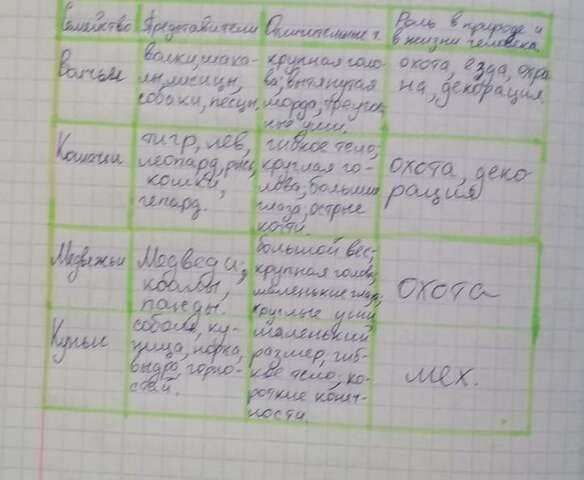 Семейство Представители Отличительные п. Роль в природе и
в жизни человека
Волчьи
волки, шака-
лы, лисицы,
собаки, песцы.
крупная голо-
ва; вытянутая
морда, треуголь-
ные уши.
охота, езда, охра-
на, декорация
Кошачьи
тигр, лев,
леопард, рысь,
кошки,
гепард.
гибкое тело;
круглая го-
лова; большие
глаза, острые
когти.
охота, деко-
рация
Медвежьи
Медведи,
коалы,
панды.
большой вес;
крупная голова,
маленькие глаза,
круглые уши
охота
Куньи
соболь, ку-
ница, норка,
выдра, горно-
стай.
маленький
размер, гиб-
кое тело; ко-
роткие конеч-
ности.
мех.